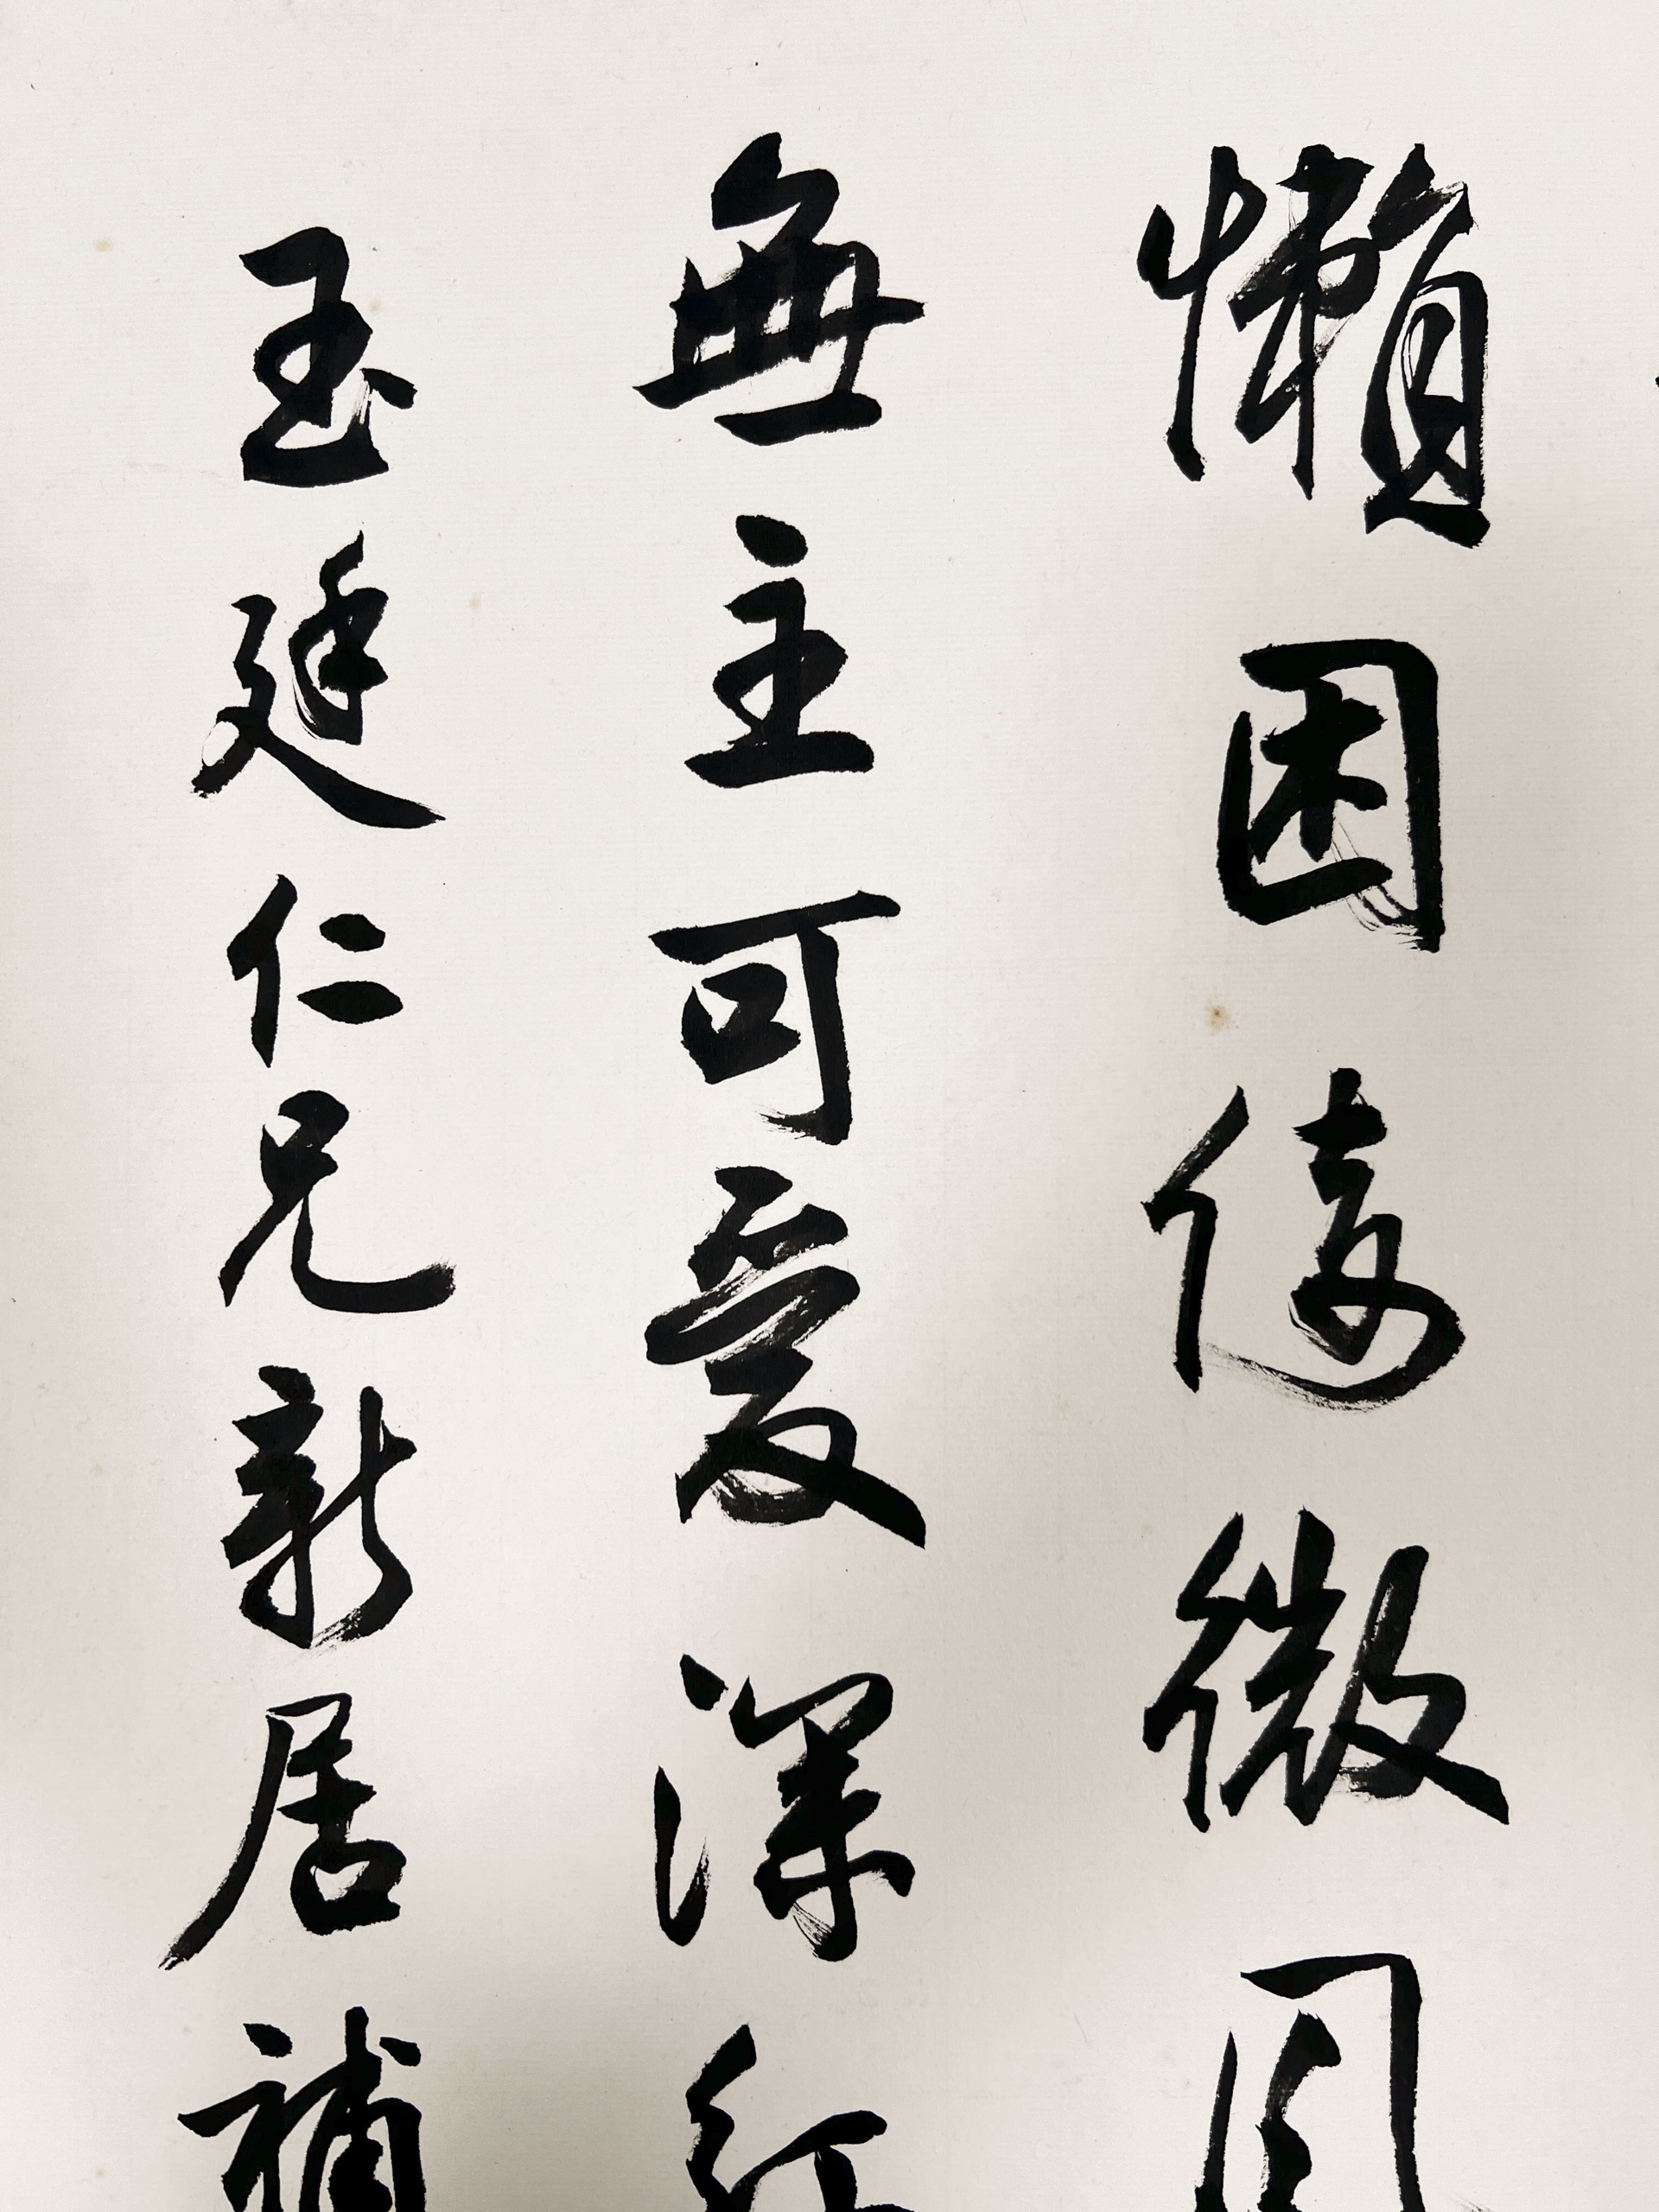 懶困倚微風
無主可愛深紅
玉廷仁兄新居補